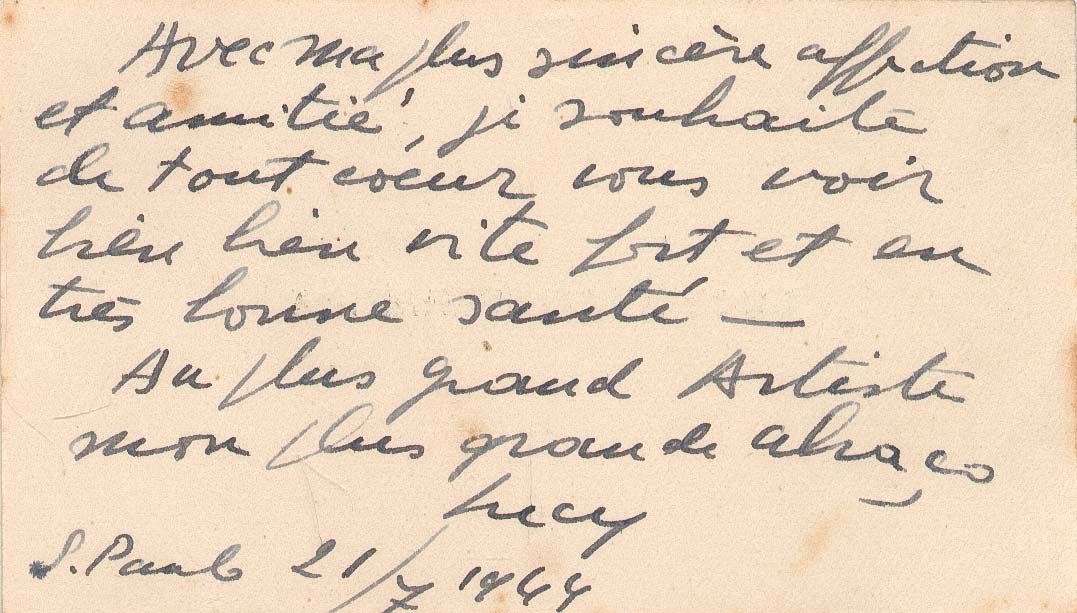 Avec ma plus sincère affection
et amitié, je souhaite
de tout coeur vous voir
bien bien vite fort et en
très bonne santé —
Au plus grand Artiste
mon plus grande abraço
Lucy
S. Paulo 21/7 1944